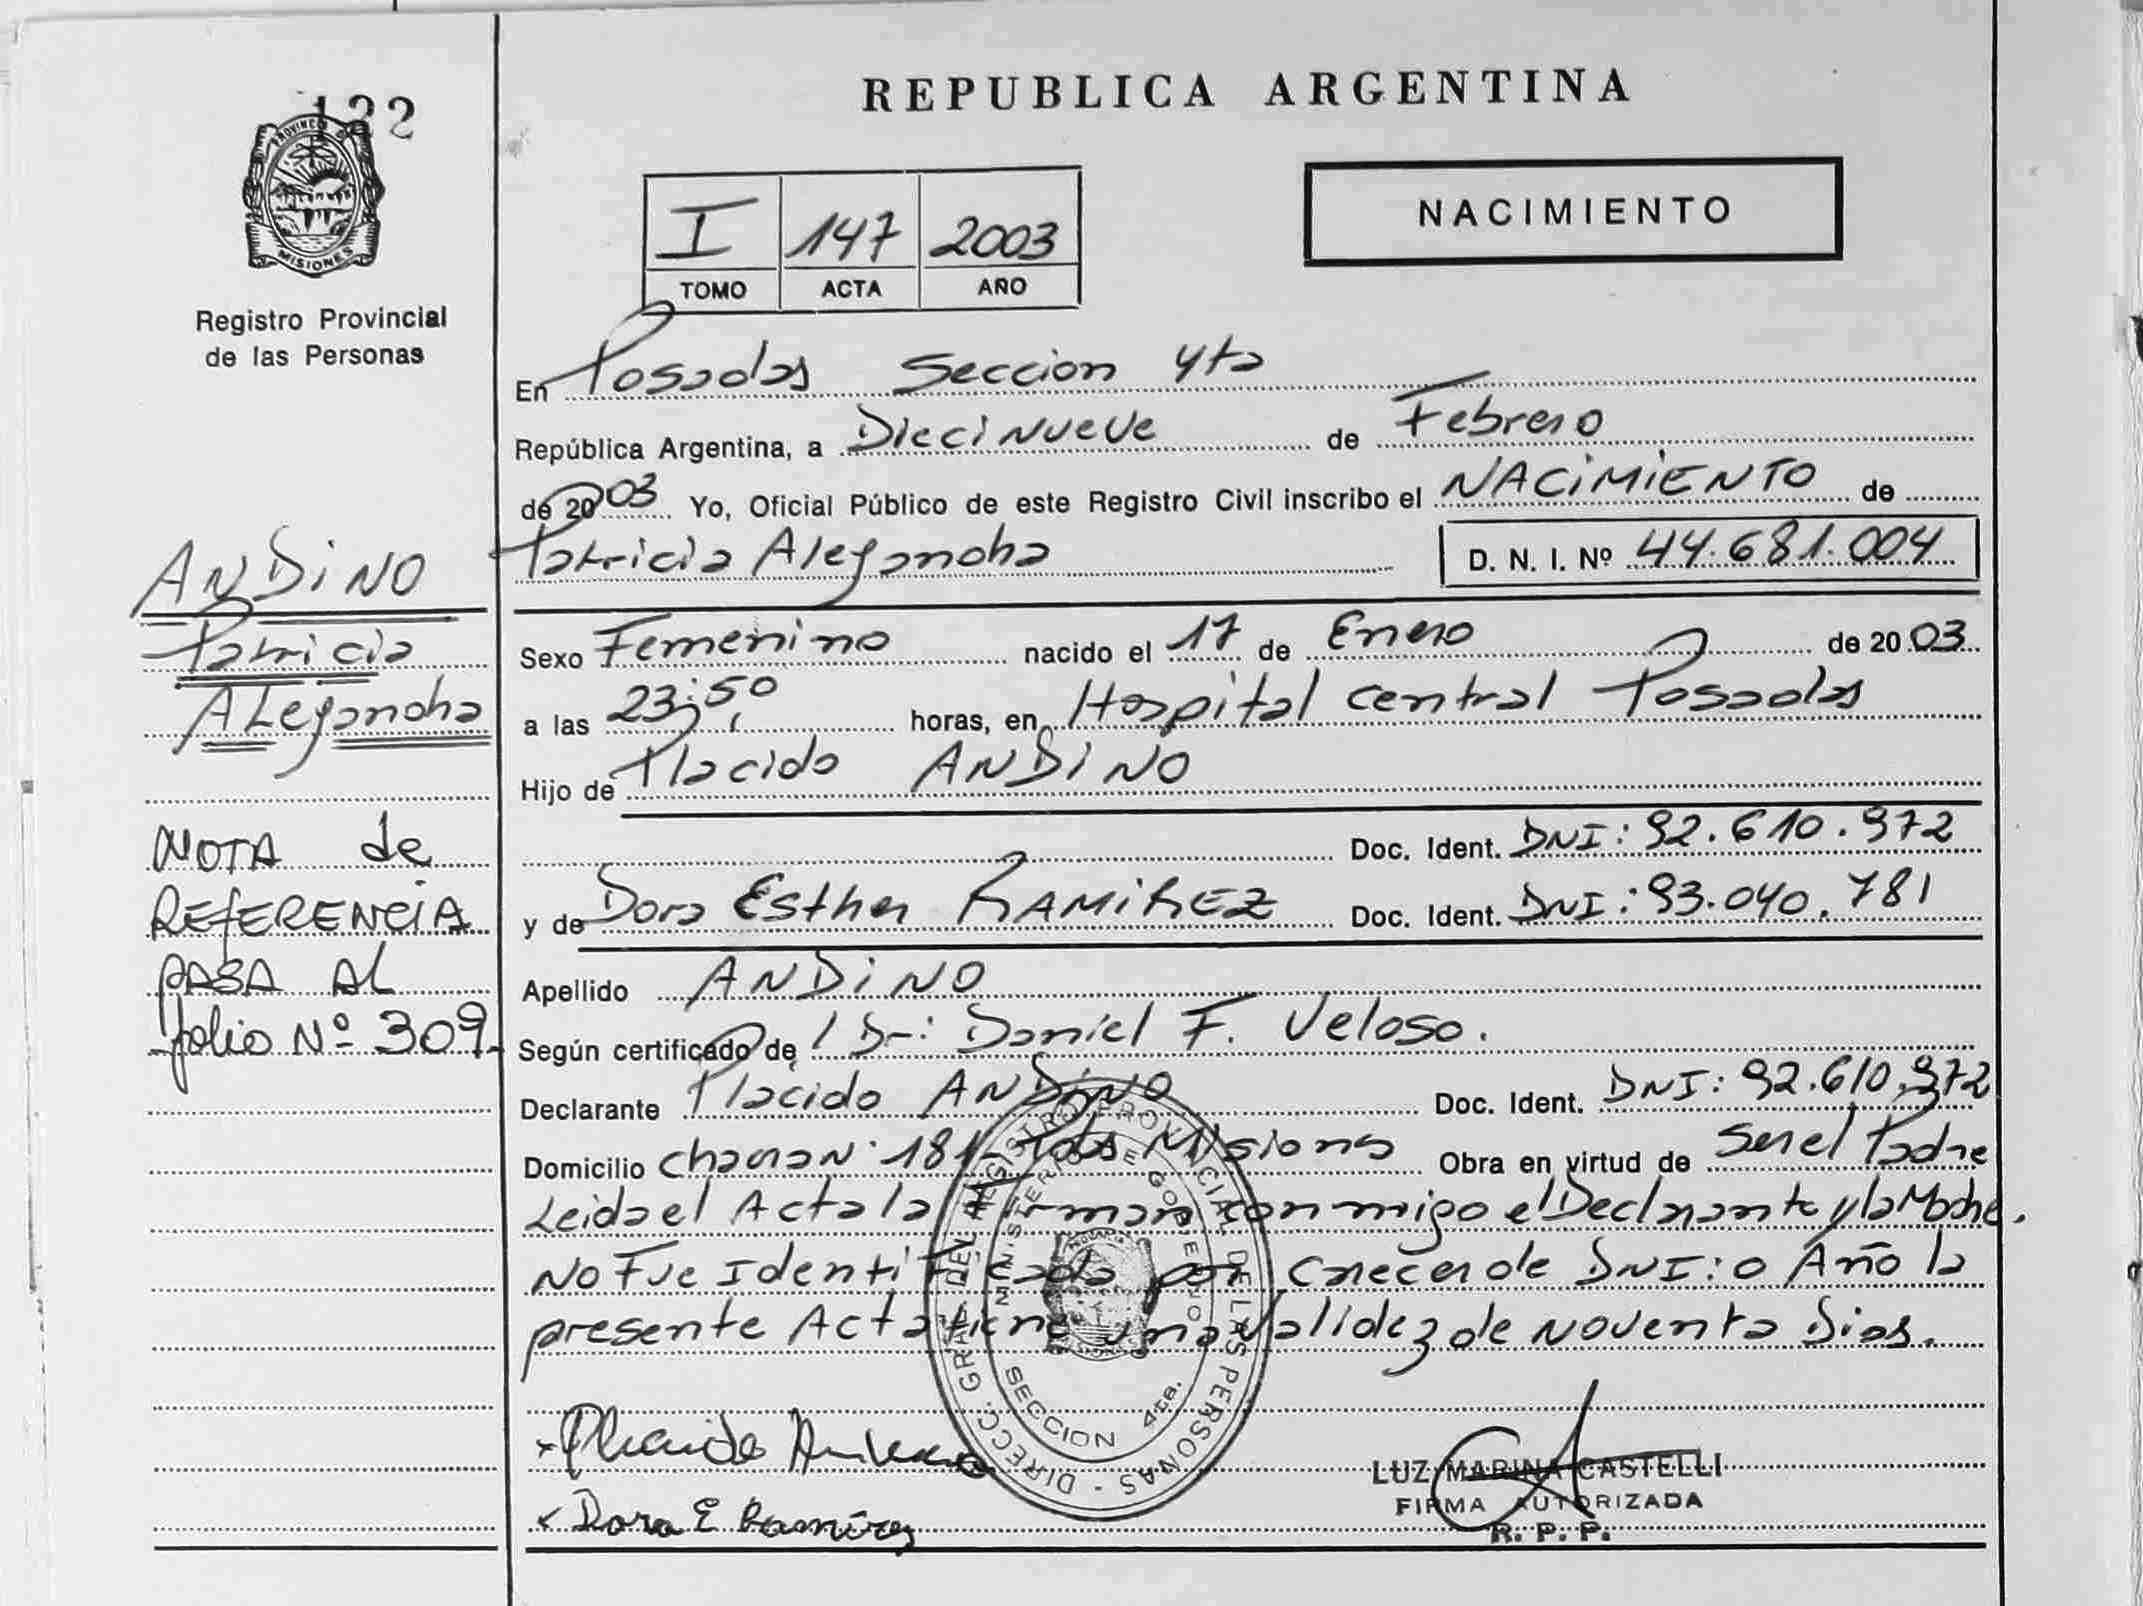 122
PROVINCIA DE
MISIONES
Registro Provincial
de las Personas
ANDINO
Patricia
ALejandra
NOTA de
REfERENCIA
PASA AL
folio Nº 309
REPUBLICA ARGENTINA
NACIMIENTO
I 147 2003
TOMO ACTA AÑO
En Posadas Seccion 4ta
República Argentina, a Diecinueve de Febrero
de 2003 Yo, Oficial Público de este Registro Civil inscribo el NACIMIENTO de
Patricia Alejandra D. N. I. Nº 44.681.004
Sexo Femenino nacido el 17 de Enero de 2003
a las 23:50 horas, en Hospital central Posadas
Hijo de Placido ANDINO
Doc. Ident. DNI: 92.610.972
y de Dora Esther RAMIREZ Doc. Ident. DNI: 93.040.781
Apellido ANDINO
Según certificado de Dr: Daniel F. Veloso.
Declarante Placido ANDINO Doc. Ident. DNI: 92.610.972
Domicilio N° 181 Pdas Misions Obra en virtud de Ser el Padre
Leida el Acta la Firman conmigo el Declarante y la Madre.
No Fue Identificada por Carecer de DNI: o Año la
presente Acta tiene una validez de Noventa Dias.
DIRECC. GRAL DEL REGISTRO PROVINCIAL DE LAS PERSONAS -
MINISTERIO DE GOBIERNO
SECCION 4ta.
Dora E Ramírez
LUZ MARINA CASTELLI
FIRMA AUTORIZADA
R. P. P.